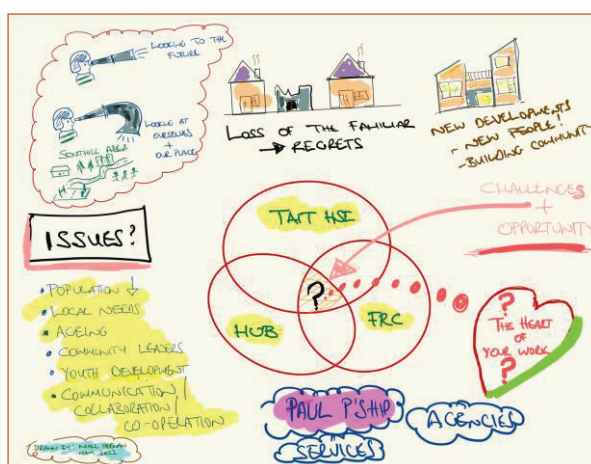 LOOKING TO THE
FUTURE
LOOKING AT
OURSELVES
+
OUR PLACE
SOUTHILL AREA
LOSS OF THE FAMILIAR
→ REGRETS
NEW DEVELOPMENTS
- NEW PEOPLE!
- BUILDING COMMUNITY
CHALLENGES
+
OPPORTUNITY
ISSUES?
• POPULATION ↓
• LOCAL NEEDS
• AGEING
• COMMUNITY LEADERS
• YOUTH DEVELOPMENT
• COMMUNICATION/
COLLABORATION/
CO-OPERATION
TAIT HSE
?
HUB
FRC
?
THE HEART
OF
YOUR WORK
?
PAUL P'SHIP
SERVICES
AGENCIES
DRAWN BY:
MAY 2022